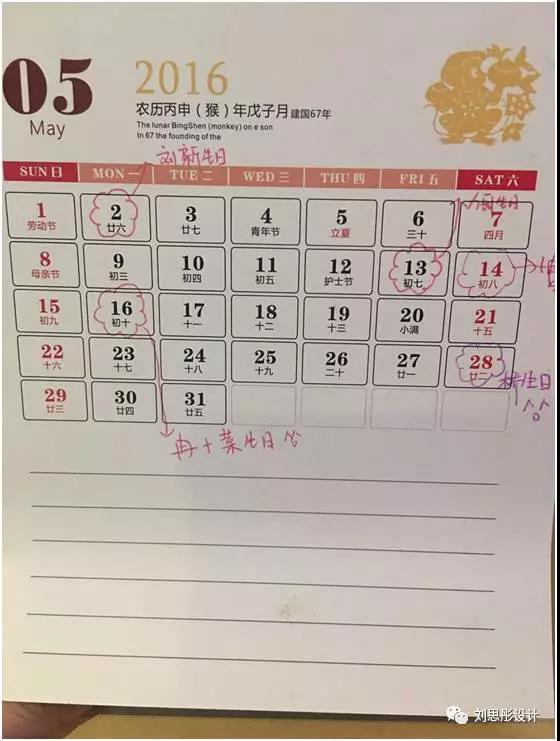 05
May
2016
农历丙申（猴）年戊子月 建国67年
The lunar BingShen (monkey) on e son
In 67 the founding of the
刘新生日
SUN 日 MON 一 TUE 二 WED 三 THU 四 FRI 五 SAT 六
生日
1 2 3 4 5 6 7
劳动节 廿六 廿七 青年节 立夏 三十 四月
8 9 10 11 12 13 14
母亲节 初三 初四 初五 护士节 初七 初八
15 16 17 18 19 20 21
初九 初十 十一 十二 十三 小满 十五
22 23 24 25 26 27 28
十六 十七 十八 十九 二十 廿一 廿二
生日
29 30 31
廿三 廿四 廿五
冉+菜生日
刘思彤设计